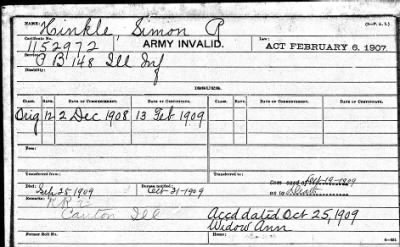 NAME: Hinkle, Simon P
(3-P. A. I.)
Certificate No.
1152972
ARMY INVALID.
Law:
ACT FEBRUARY 6, 1907.
Service:
C B 148 Ill Inf
Disability:
CLASS. RATE. DATE OF COMMENCEMENT. DATE OF CERTIFICATE. CLASS. RATE. DATE OF COMMENCEMENT. DATE OF CERTIFICATE.
Orig 12 2 Dec 1908 13 Feb 1909
From:
Transferred from: Transferred from:
1909
Died: Bureau notified:
1909 Oct-31-1909
Remarks:
Canton Ill
Accd dated Oct 25, 1909
Widow Ann
Former Roll No. Home: